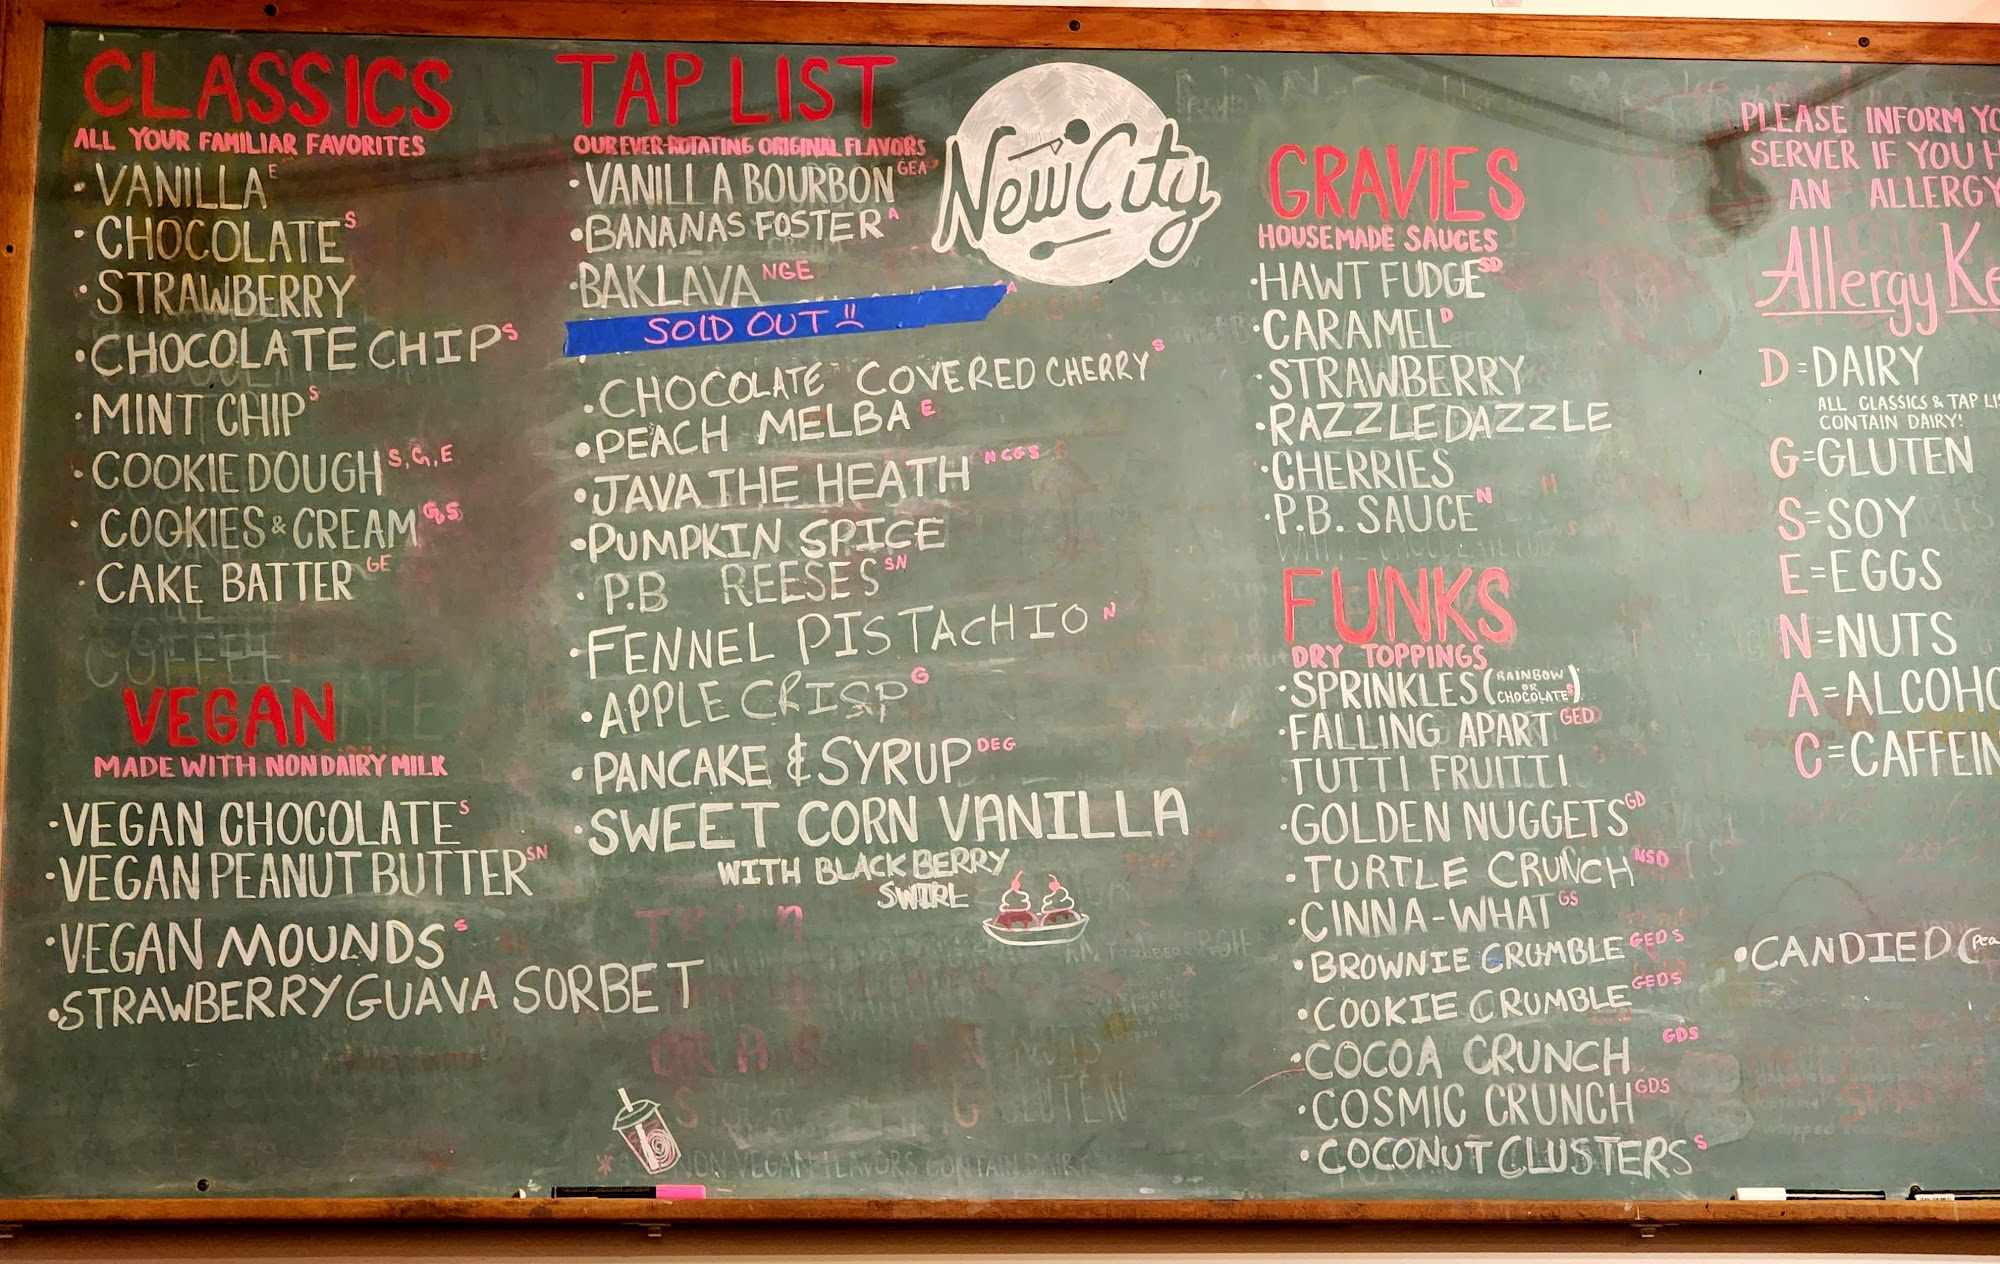 CLASSICS
ALL YOUR FAMILIAR FAVORITES
·VANILLA E
·CHOCOLATE S
·STRAWBERRY
·CHOCOLATE CHIP S
·MINT CHIP S
·COOKIE DOUGH S,G,E
·COOKIES & CREAM G,S
·CAKE BATTER GE
COFFEE
VEGAN
MADE WITH NONDAIRY MILK
·VEGAN CHOCOLATE S
·VEGAN PEANUT BUTTER SN
·VEGAN MOUNDS S
·STRAWBERRY GUAVA SORBET
TAP LIST
OUR EVER-ROTATING ORIGINAL FLAVORS
·VANILLA BOURBON GEA
·BANANAS FOSTER A
·BAKLAVA NGE
SOLD OUT
·CHOCOLATE COVERED CHERRY S
·PEACH MELBA E
·JAVA THE HEATH NCGS
·PUMPKIN SPICE
·P.B REESES SN
·FENNEL PISTACHIO N
·APPLE CRISP G
·PANCAKE & SYRUP DEG
·SWEET CORN VANILLA
WITH BLACKBERRY
SWIRL
GLUTEN
NON VEGAN FLAVORS CONTAIN DAIRY
New City
GRAVIES
HOUSEMADE SAUCES
·HAWT FUDGE SD
·CARAMEL D
·STRAWBERRY
·RAZZLE DAZZLE
·CHERRIES
·P.B. SAUCE N
FUNKS
DRY TOPPINGS
·SPRINKLES (RAINBOW OR CHOCOLATE S)
·FALLING APART GED
·TUTTI FRUITTI
·GOLDEN NUGGETS GD
·TURTLE CRUNCH NSD
·CINNA-WHAT GS
·BROWNIE CRUMBLE GEDS
·COOKIE CRUMBLE GEDS
·COCOA CRUNCH GDS
·COSMIC CRUNCH GDS
·COCONUT CLUSTERS S
PLEASE INFORM YO
SERVER IF YOU H
AN ALLERGY
Allergy Ke
D=DAIRY
ALL CLASSICS & TAP LIS
CONTAIN DAIRY!
G=GLUTEN
S=SOY
E=EGGS
N=NUTS
A=ALCOHO
C=CAFFEIN
·CANDIED (Pea